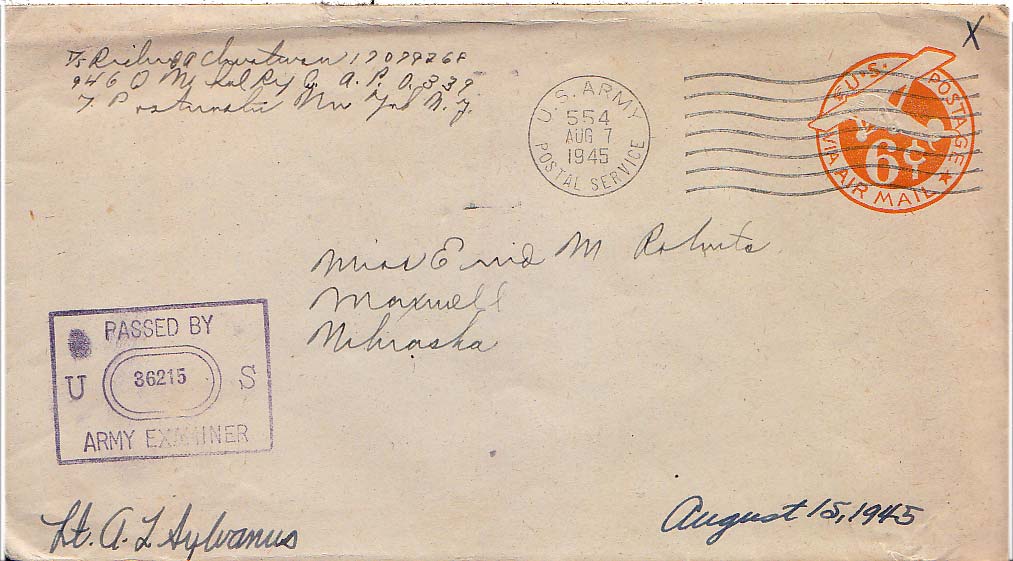 T/5 Richard A 17079268
946 O M A. P. O. 339
% Postmaster New York N. Y.
U.S. ARMY
554
AUG 7
1945
POSTAL SERVICE
U.S. POSTAGE
6¢
VIA AIR MAIL
X
Miss Enid M Roberts
Maxwell
Nebraska
PASSED BY
U 36215 S
ARMY EXAMINER
Lt. A. L Sylvanus
August 15, 1945